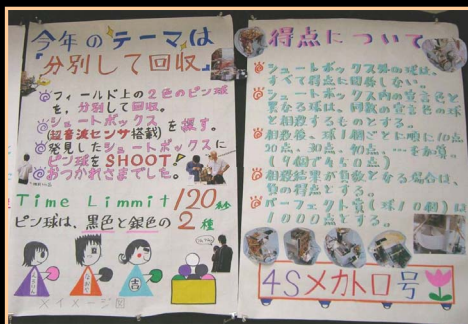 今年のテーマは
『分別して回収』
フィールド上の2色のピン球
を、分別して回収。
シュートボックス
(超音波センサ搭載)を探す。
発見したシュートボックスに
ピン球をSHOOT!
おつかれさまでした。
Time Limmit 120秒
ピン球は、黒色と銀色の2種
なおや
吉
×イメージ図
得点について
シュートボックス外の球は、
すべて得点に関係しない。
シュートボックス内の宣言色と
異なる球は、同数の宣言色の球
と相殺するものとする。
相殺後、球1個ごとに順に10点
20点、30点、40点、…を加算。
相殺結果が負数となる場合は、
負の得点とする。
パーフェクト賞(球10個)は
1000点とする。
4Sメカトロ号